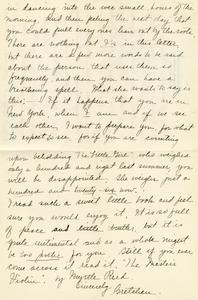 in dancing into the wee small hours of the
morning, and then feeling the next day that
you could pull every one's hair out by the roots.
There are nothing but I's in this letter,
but there are a few more words to be said
about the person that uses them so
frequently, and then you can have a
breathing spell. What she wants to say is
this: If it happens that you are in
New York, when I am and if we see
each other, I want to prepare you for what
to expect to see for if you are counting
upon beholding "The Little Girl" who weighed
only a hundred and eight last summer, you
will be disappointed. She weighs just a
hundred and twenty-six now.
I read such a sweet little book and feel
sure you would enjoy it. It is so full
of peace and but it is
quite sentimental and as a whole might
be too for you. Still if you ever
come across it read it. "The Master's
Violin", by Myrtle Reed
Sincerely Gretchen.